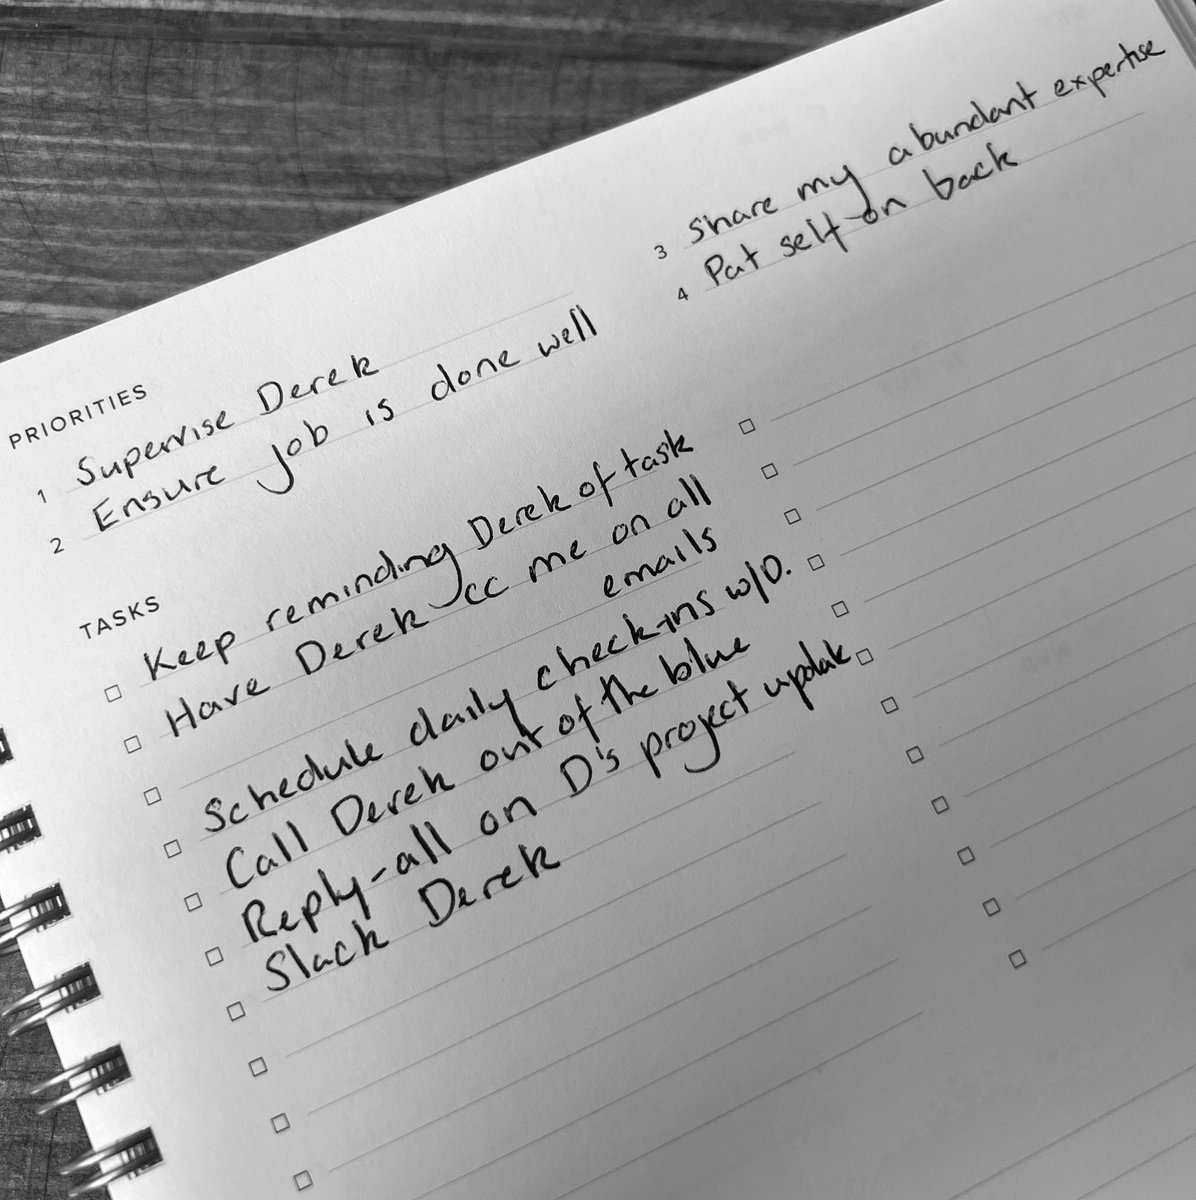 PRIORITIES
1 Supervise Derek
2 Ensure job is done well
3 share my abundant expertise
4 Pat self on back
TASKS
Keep reminding Derek of task
Have Derek cc me on all
emails
Schedule daily check-ins w/D.
Call Derek out of the blue
Reply-all on D's project update
Slack Derek